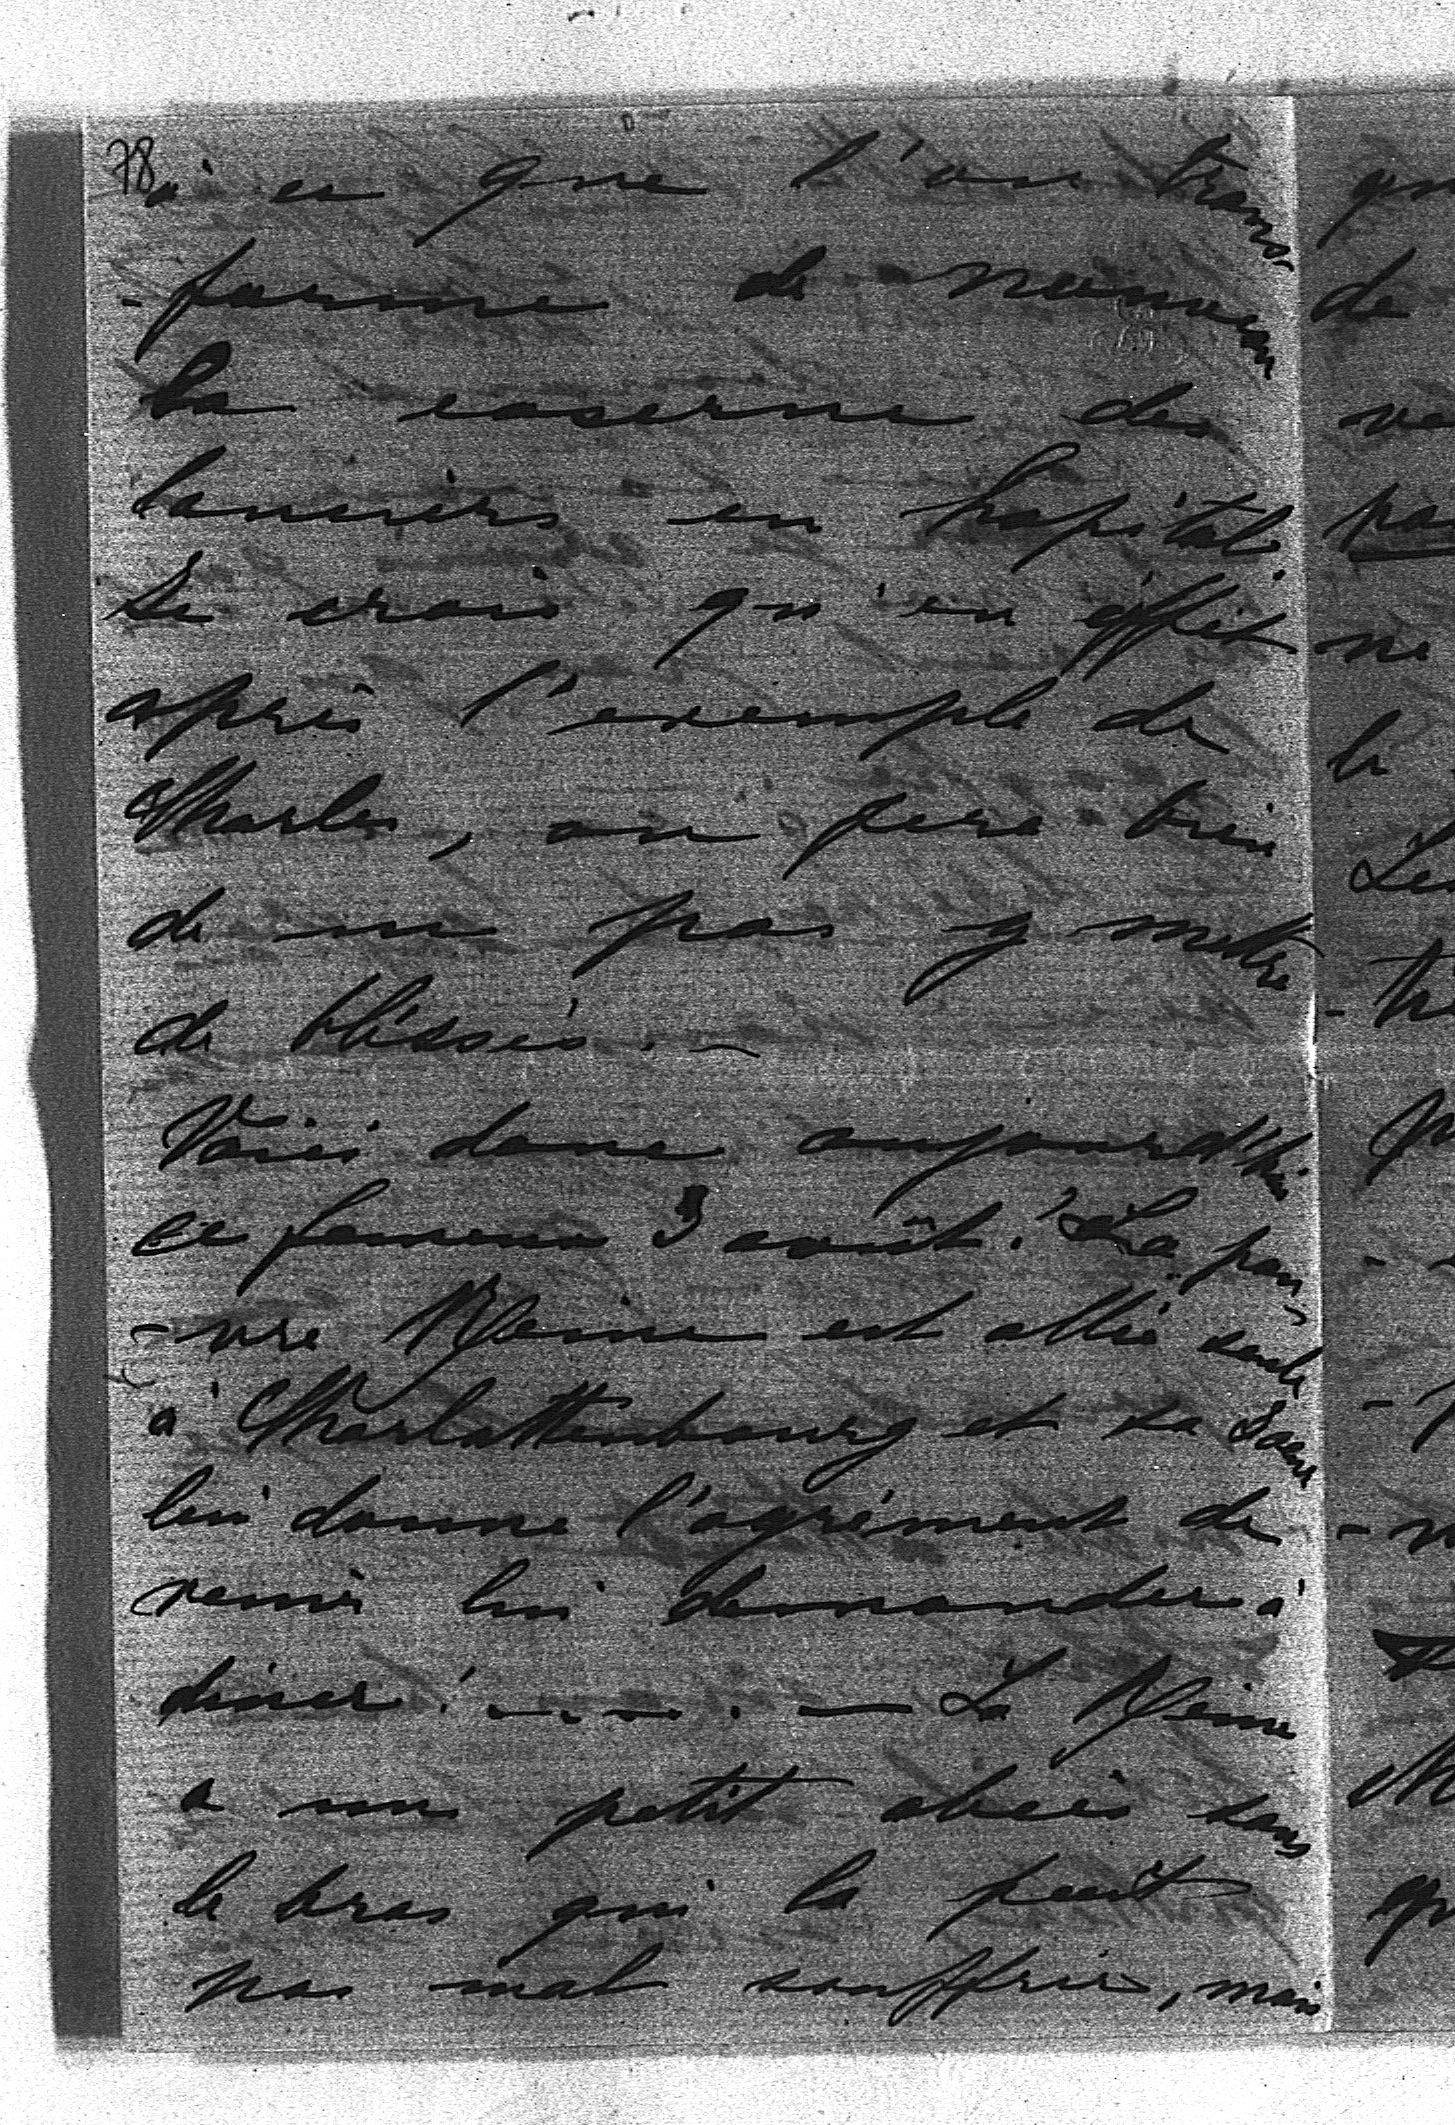 78
à ce que l'on trans-
-forme de nouveau
la caserne des
lanciers en hopital.
Je crois qu'en éffet
après l'exemple de
Charles, on fera bien
de ne pas y mettre
de bléssés. —
Voici donc aujourd'hui
ce fameux 3 août! La pau-
-vre Reine est allée seule
à Charlottenbourg et sa Soeur
lui donne l'agrément de
venir lui demander à
diner!..... — La Reine
a un petit abcès sous
le bras qui la fait
pas mal souffrir, mais